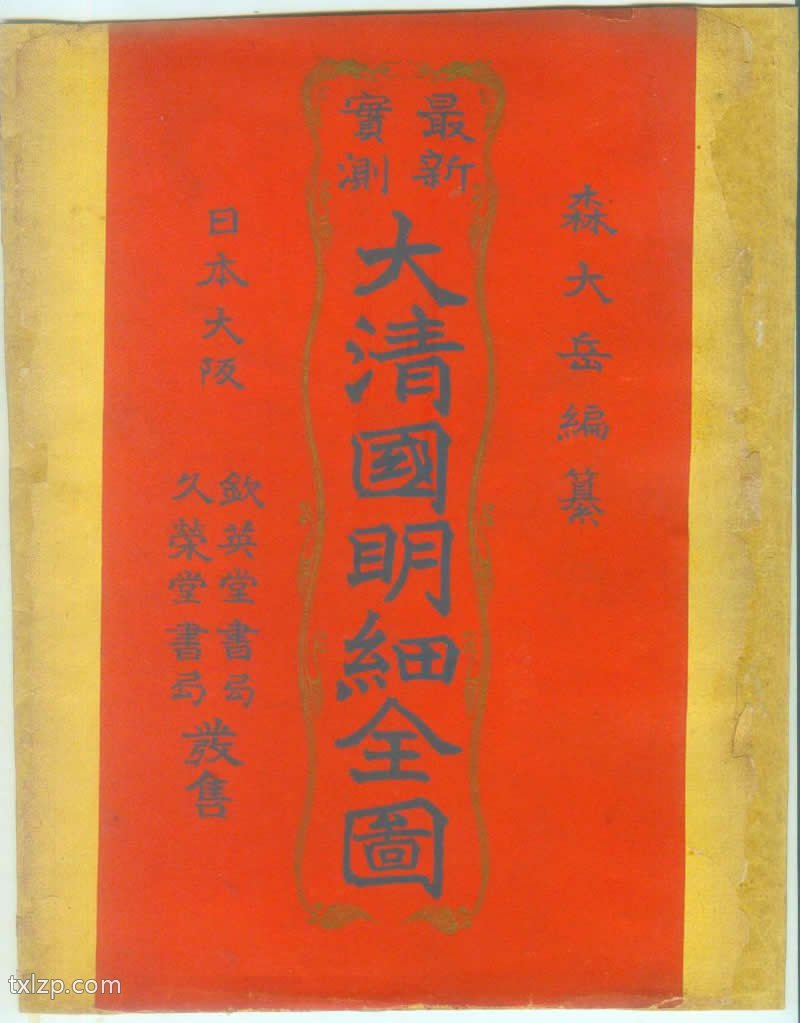 森大岳編纂
最新
實測
大清國明細全圖
日本大阪
欽英堂書局
久榮堂書局
發售
txlzp.com